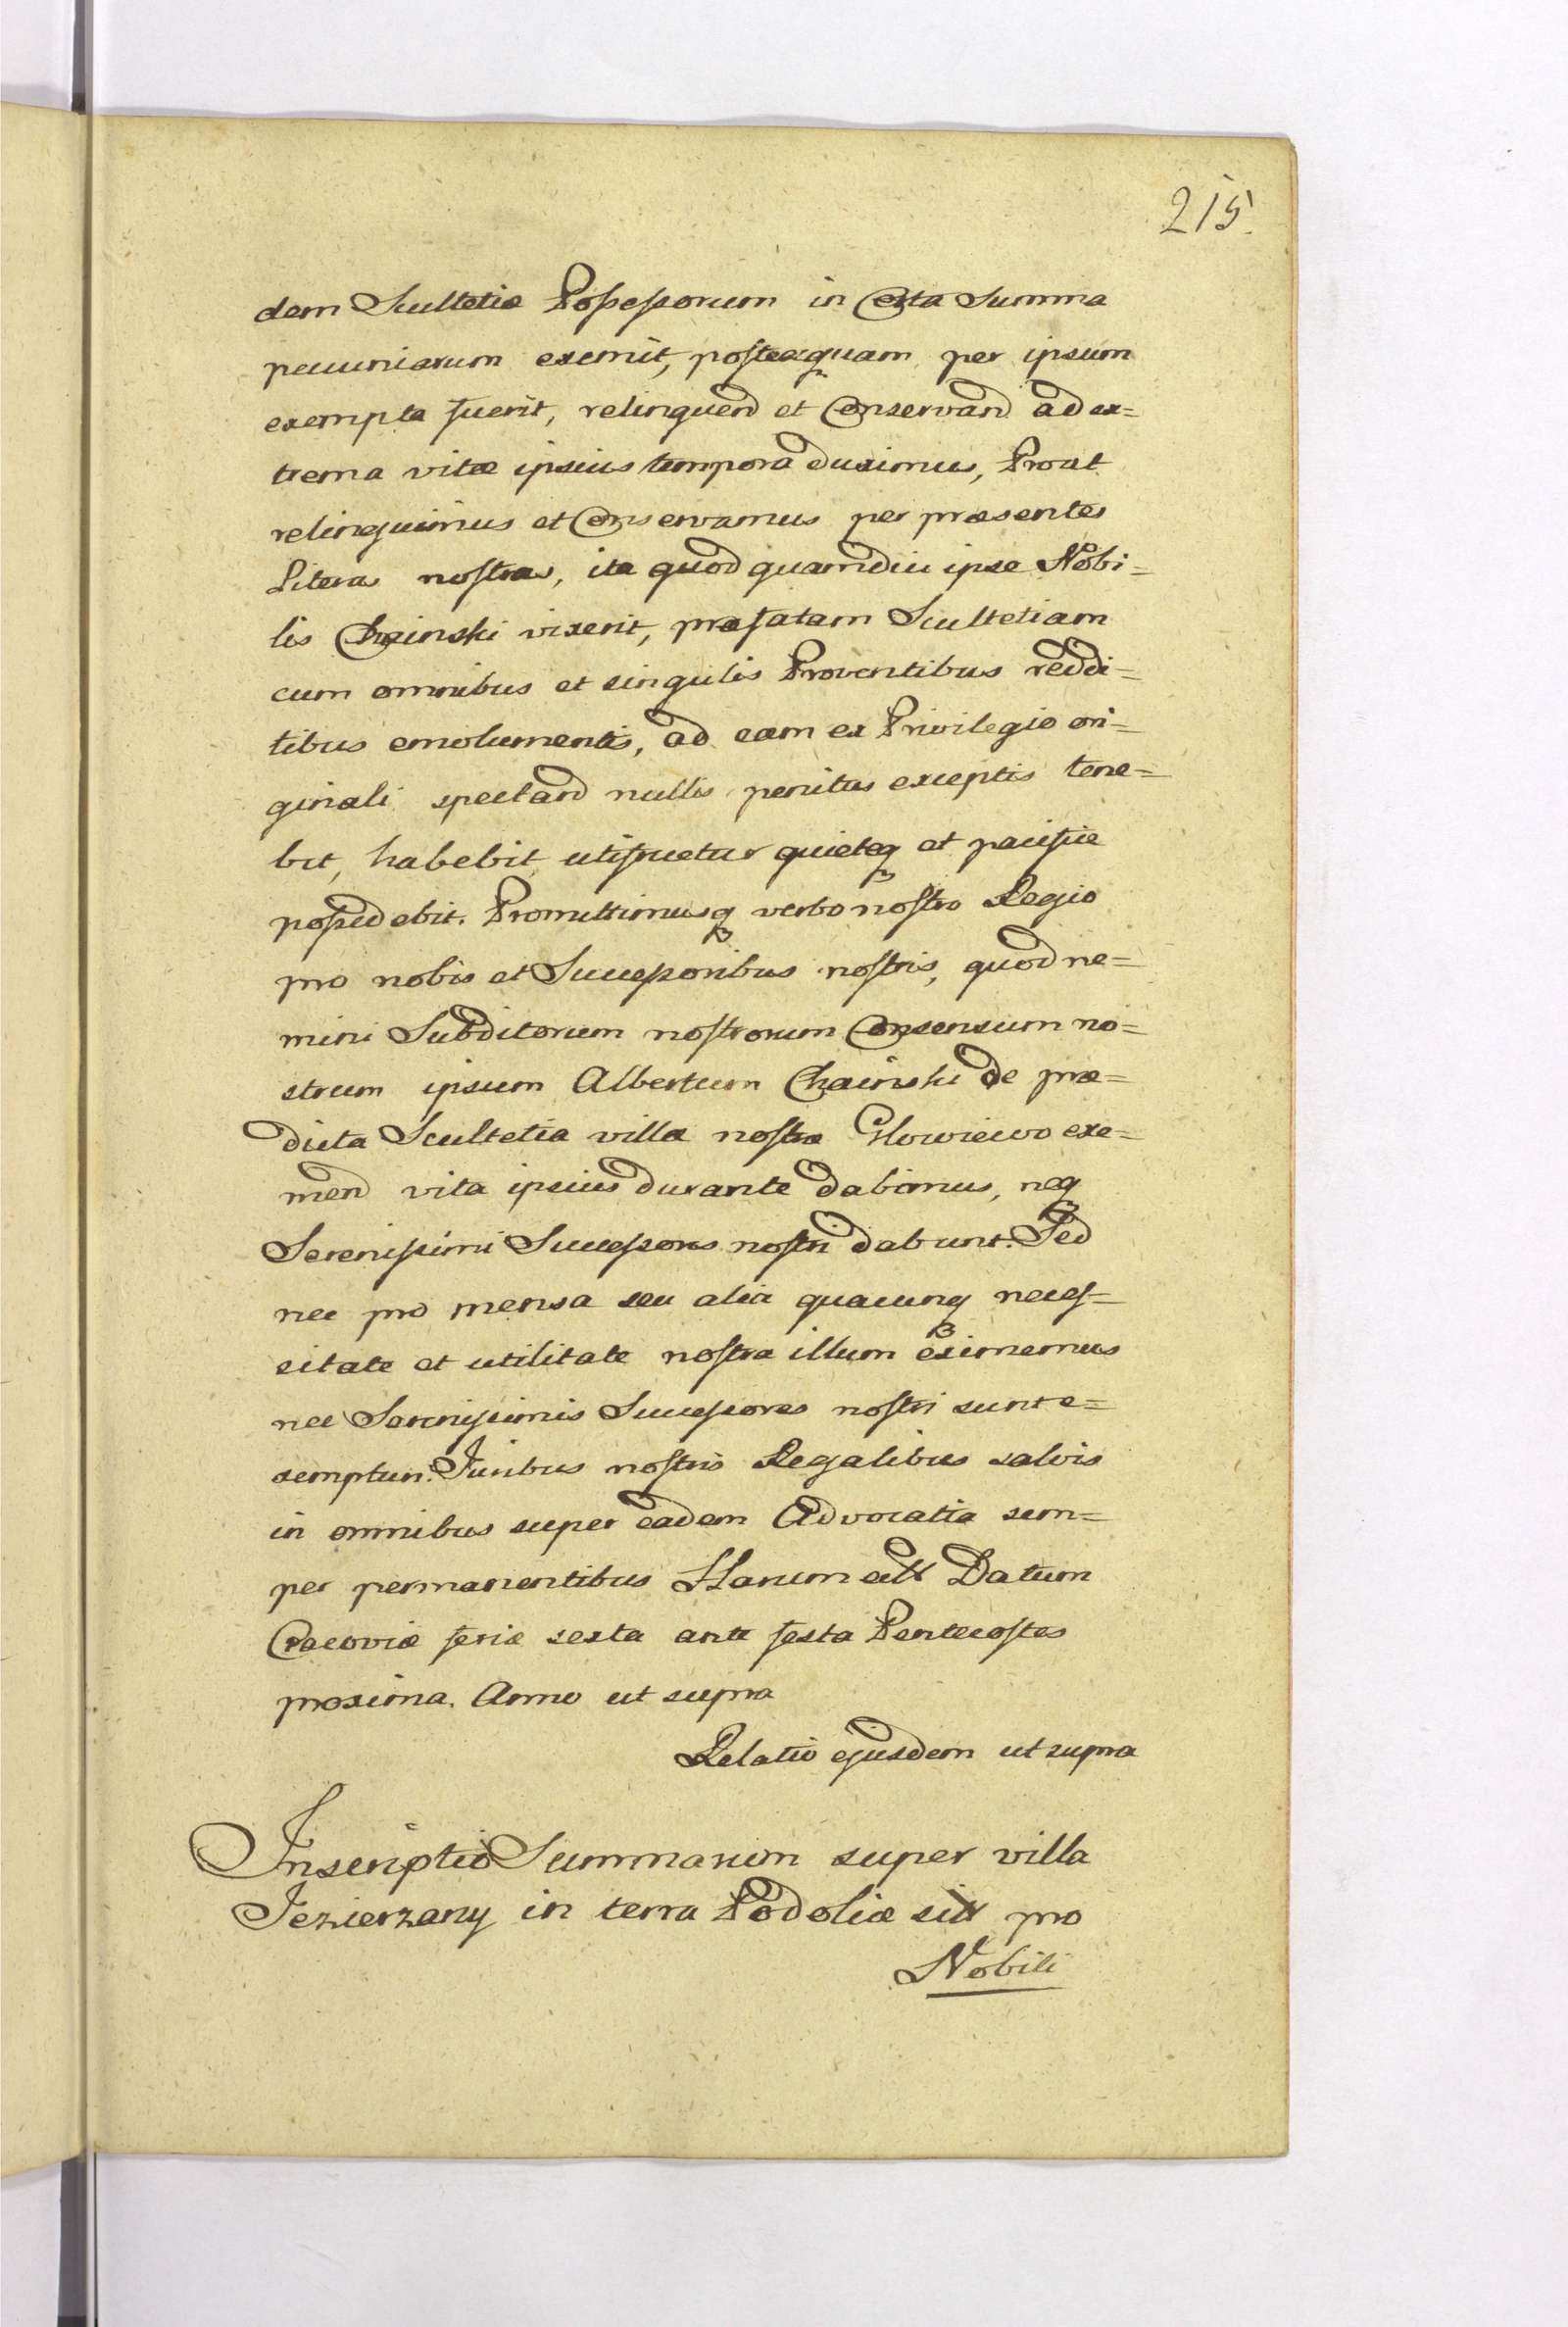 215.
dem Scultetiæ Possessorum in Certa Summa
pecuniarum exemit, posteaquam per ipsum
exempta fuerit, relinquend et Conservand ad ex=
trema vitæ ipsius tempora duximus, Prout
relinquimus et Conservamus per præsentes
Literas nostras, ita quod quamdiu ipse Nobi=
lis Chainski vixerit, præfatam Scultetiam
cum omnibus et singulis Proventibus reddi=
tibus emolumentis, ad eam ex Privilegio ori=
ginali spectand nullis penitus exceptis tene=
bit, habebit, utifruetur quieteq et pacifice
possidebit. Promittimusq verbo nostro Regio
pro nobis et Successoribus nostris, quod ne=
mini Subditorum nostrorum Consensum no=
strum ipsum Albertum Chainski de præ=
dicta Scultetia villæ nostræ Glowiewo exe=
mend vita ipsius durante dabimus, neq
Serenissimi Successores nostri dabunt. Sed
nec pro mensa seu alia quacunq neces=
sitate et utilitate nostra illum eximemus
nec Serenissimis Successores nostri sunt e=
xempturi. Juribus nostris Regalibus salvis
in omnibus super eadem Advocatia sem=
per permanentibus Harum Datum
Cracoviæ feria sexta ante festa Pentecostes
proxima. Anno ut supra
Relatio ejusdem ut supra
Inscriptio Summarum super villa
Jezierzany in terra Podoliæ sitt pro
Nobili